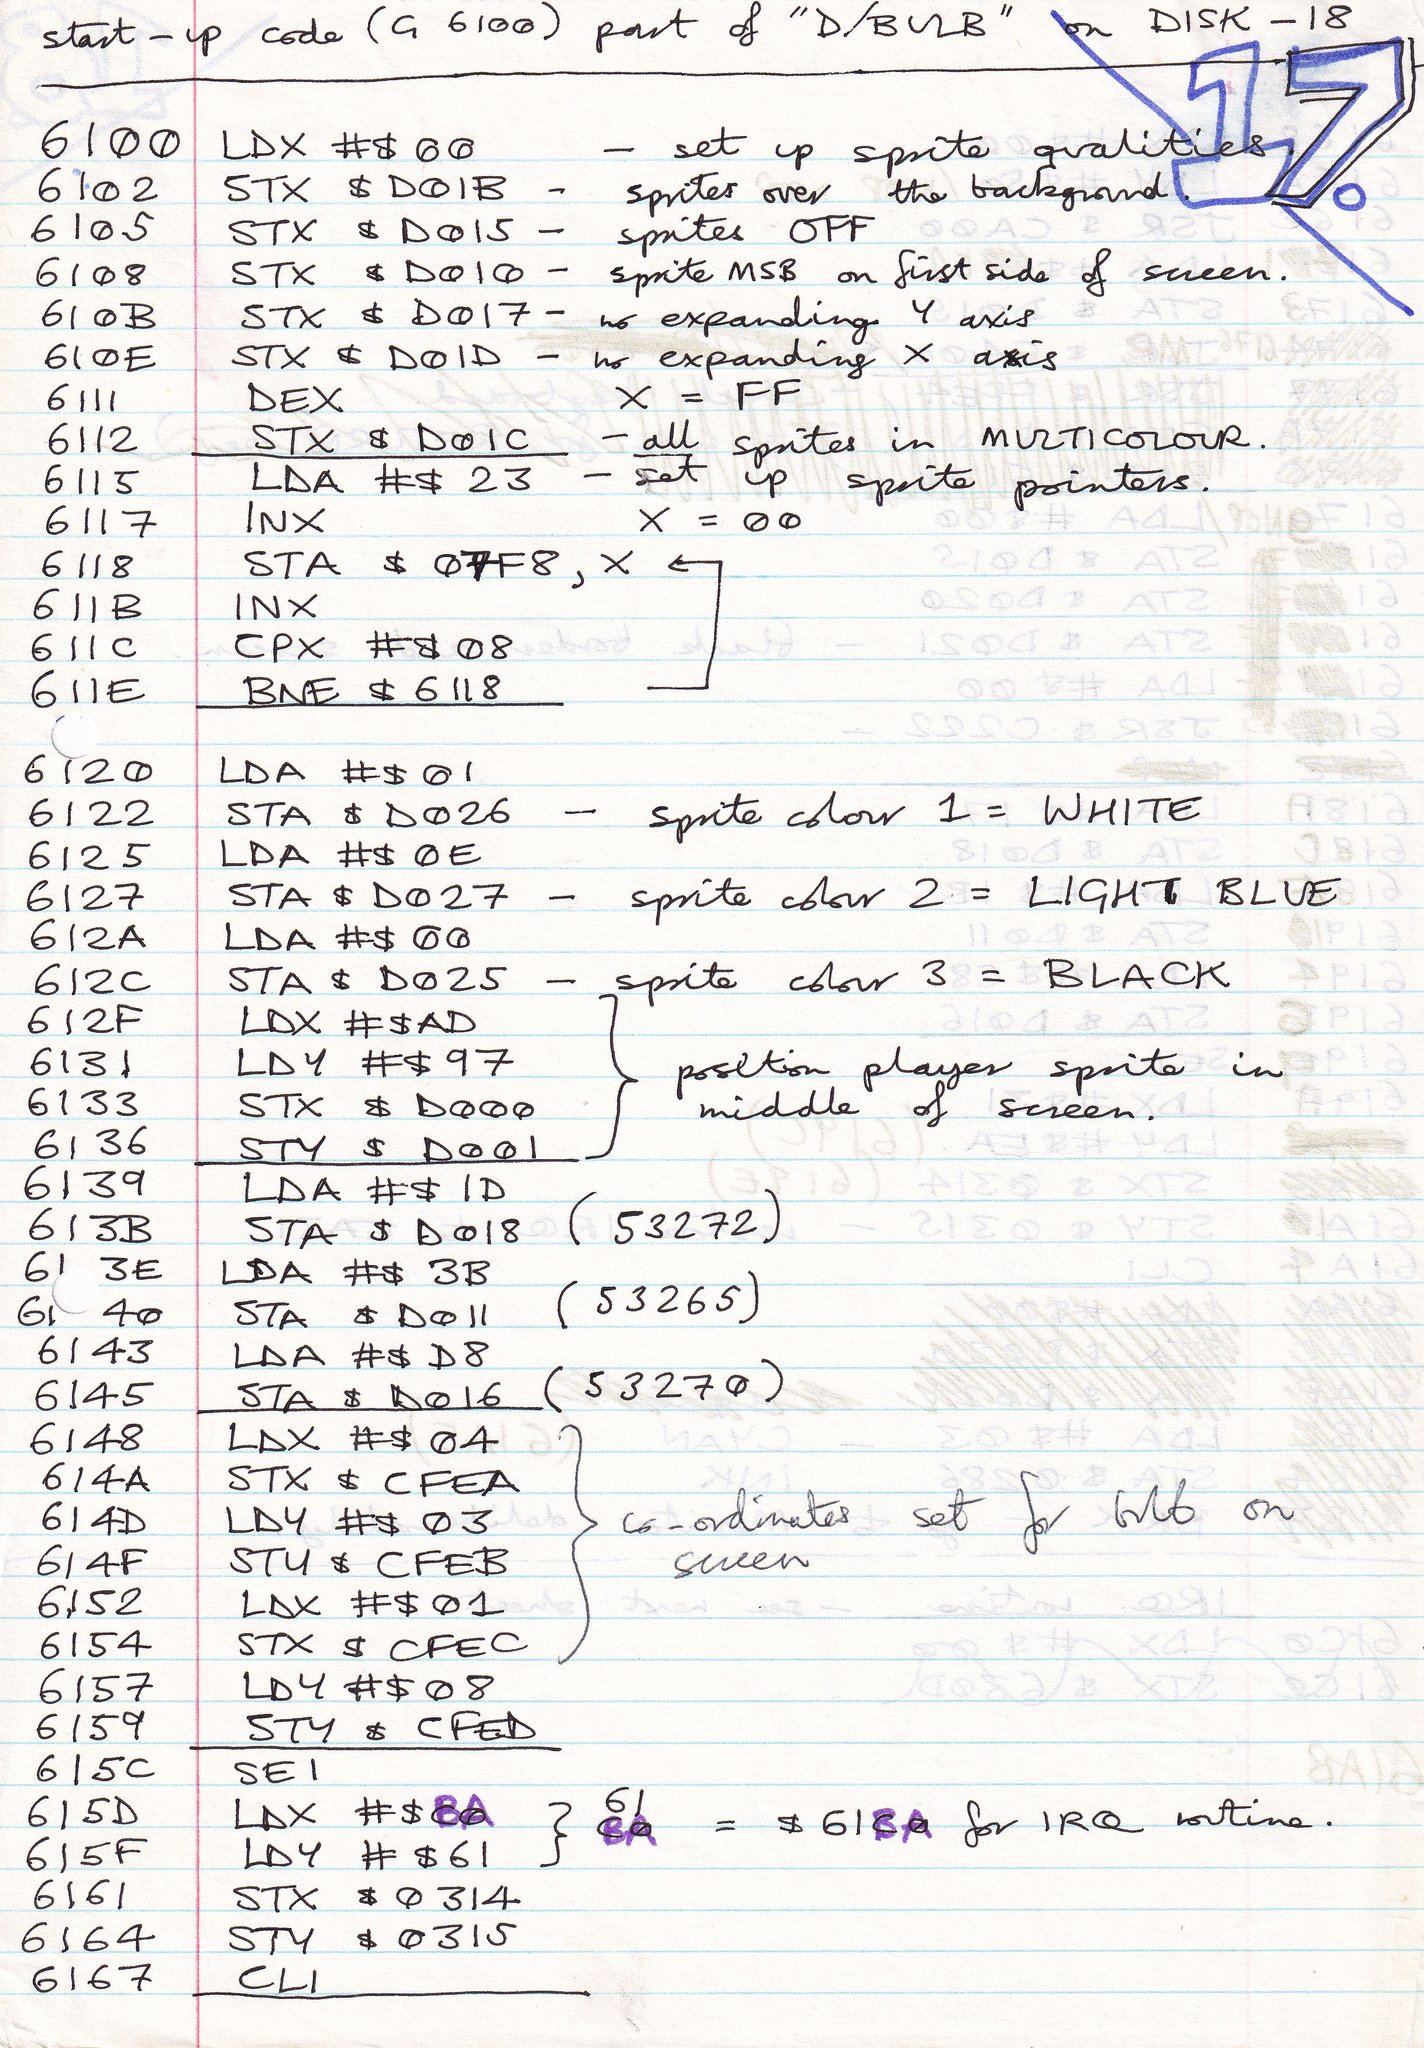 start-up code (G 6100) part of "D/BULB" on DISK-18
17.
6100 LDX #$00 - set up sprite qualities.
6102 STX $D01B - sprites over the background.
6105 STX $D015 - sprites OFF
6108 STX $D010 - sprite MSB on first side of screen.
610B STX $D017 - no expanding Y axis
610E STX $D01D - no expanding X axis
6111 DEX X = FF
6112 STX $D01C - all sprites in MULTICOLOUR.
6115 LDA #$23 - set up sprite pointers.
6117 INX X = 00
6118 STA $07F8,X ←
611B INX
611C CPX #$08
611E BNE $6118
6120 LDA #$01
6122 STA $D026 - sprite colour 1 = WHITE
6125 LDA #$0E
6127 STA $D027 - sprite colour 2 = LIGHT BLUE
612A LDA #$00
612C STA $D025 - sprite colour 3 = BLACK
612F LDX #$AD
6131 LDY #$97 position player sprite in
6133 STX $D000 middle of screen.
6136 STY $D001
6139 LDA #$1D
613B STA $D018 (53272)
613E LDA #$3B
6140 STA $D011 (53265)
6143 LDA #$D8
6145 STA $D016 (53270)
6148 LDX #$04
614A STX $CFEA
614D LDY #$03 co-ordinates set for bulb on
614F STY $CFEB screen
6152 LDX #$01
6154 STX $CFEC
6157 LDY #$08
6159 STY $CFED
615C SEI
615D LDX #$BA } 61BA = $61BA for IRQ routine.
615F LDY #$61
6161 STX $0314
6164 STY $0315
6167 CLI